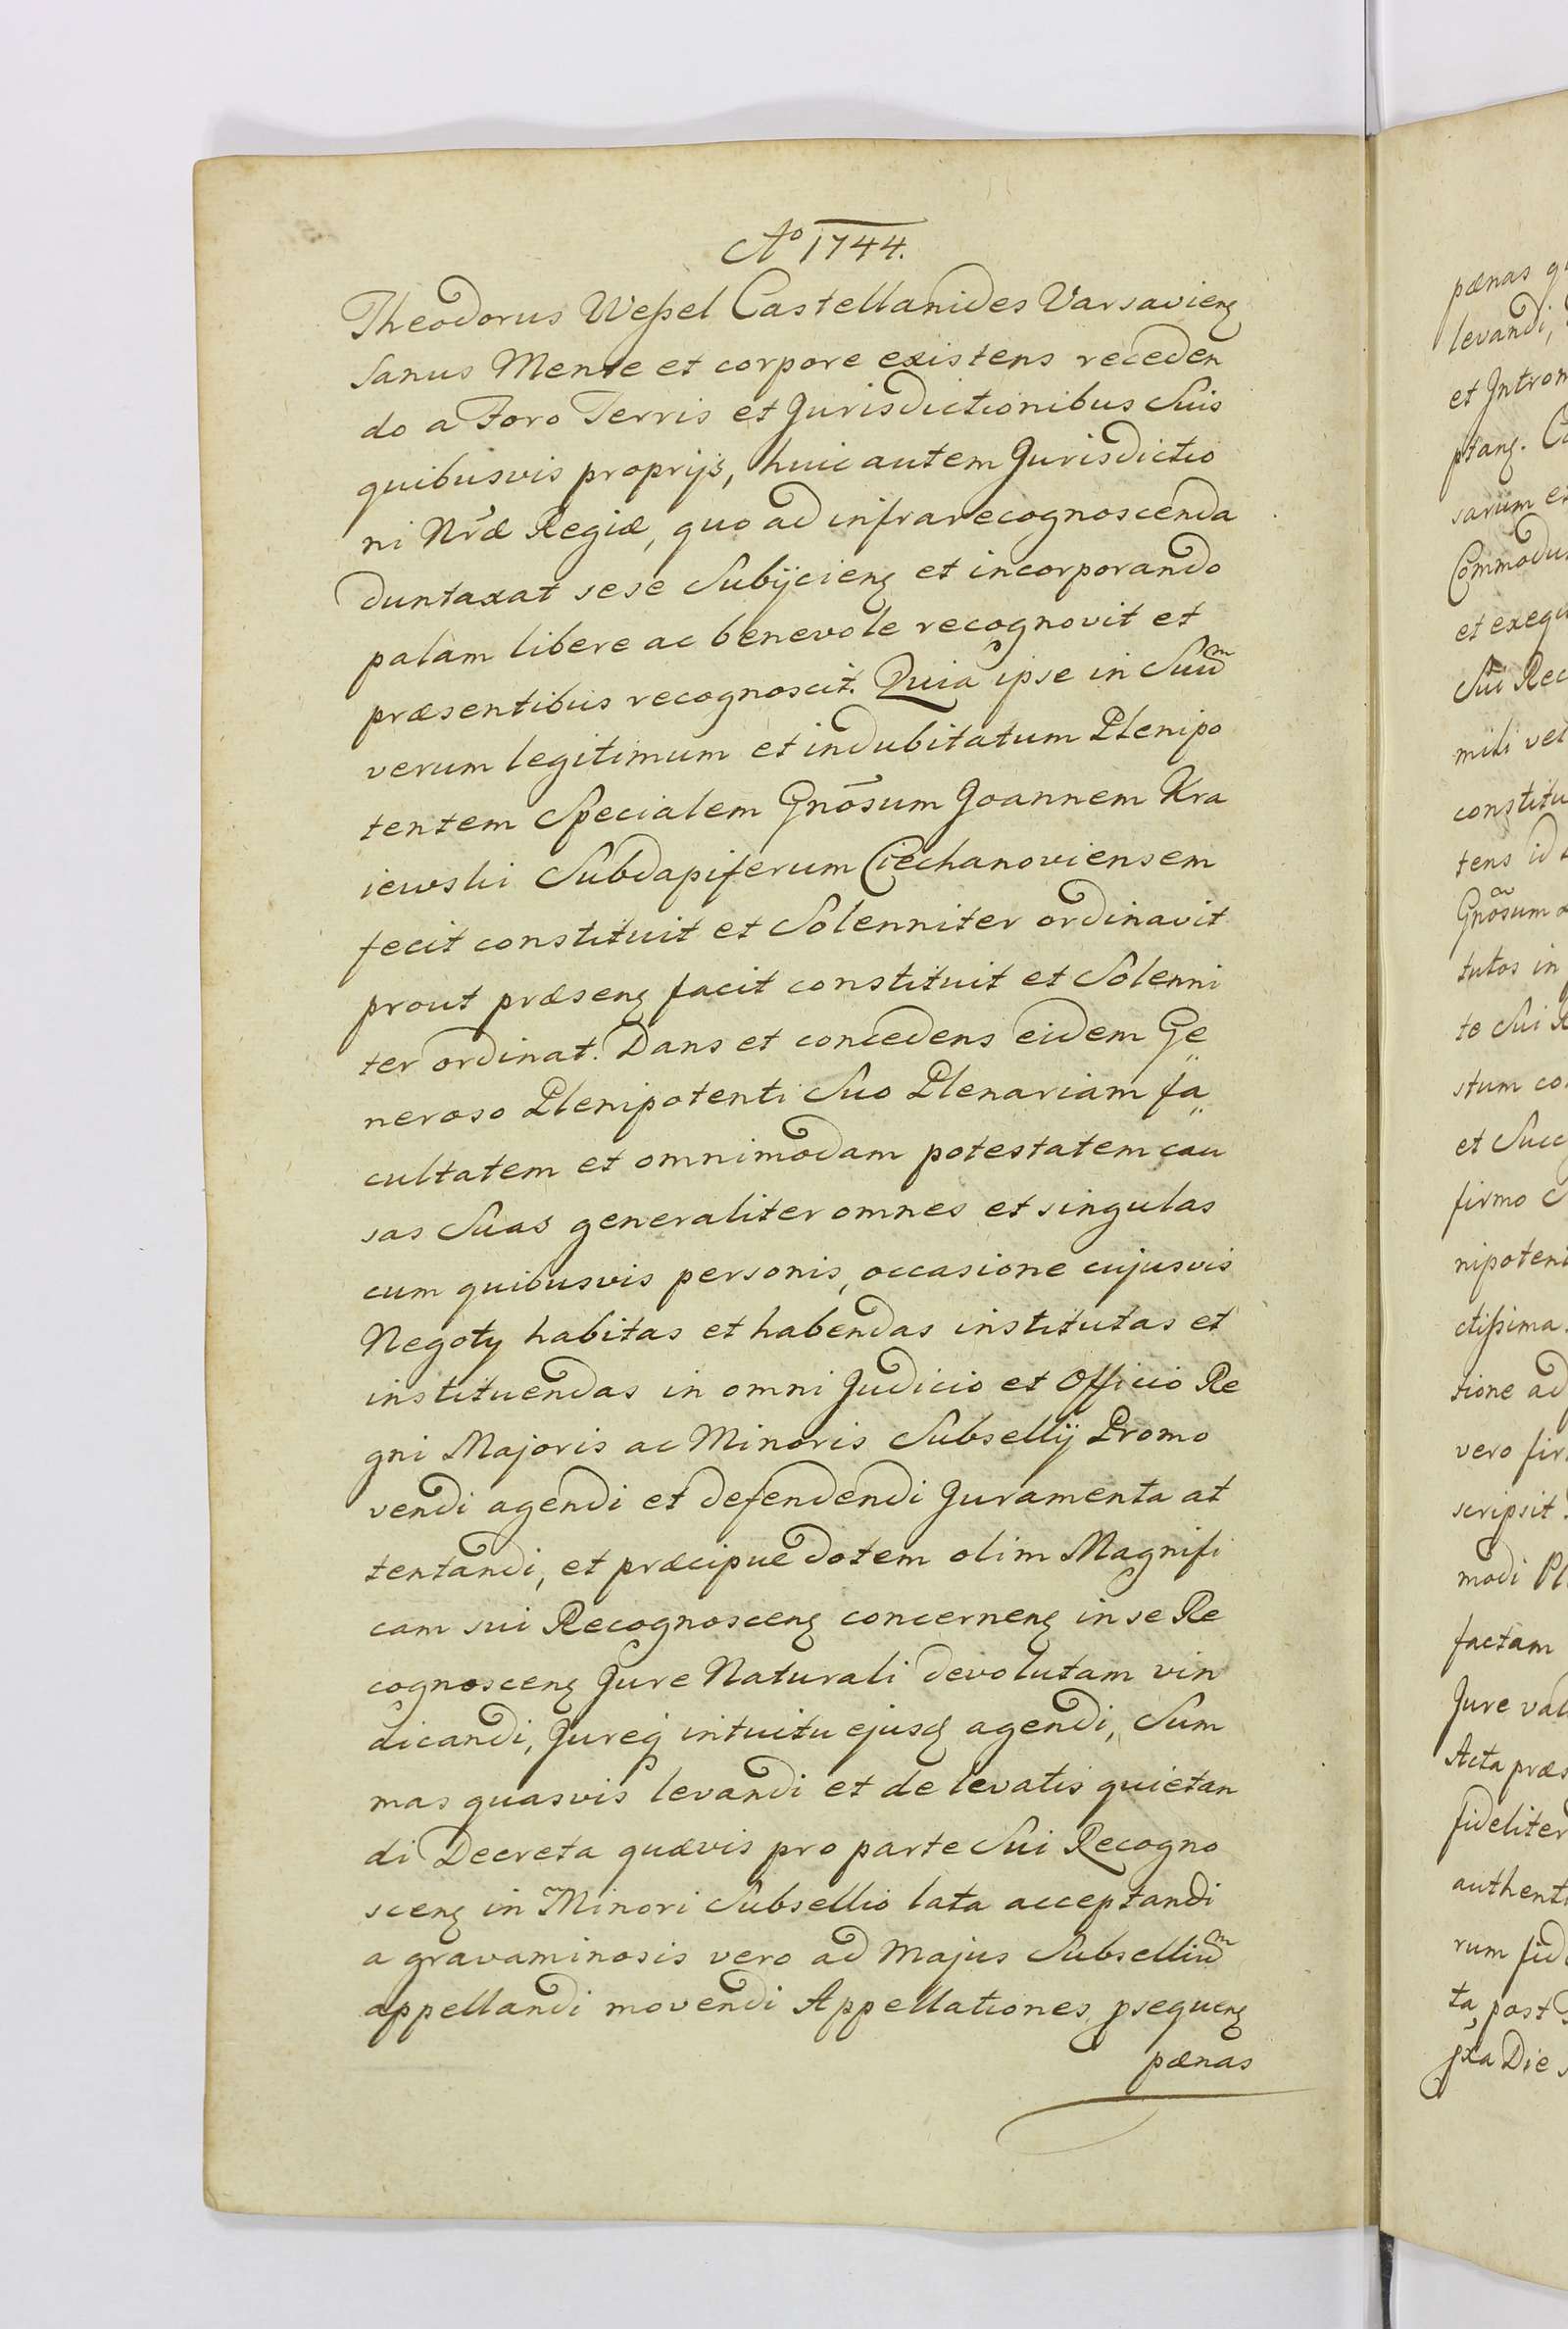 Aº 1744.
Theodorus Weſsel Castellanides Varsavienꝫ
Sanus Mente et corpore existens receden
do a Foro Terris et Jurisdictionibus Suis
quibusvis proprijs, huic autem Jurisdictio
ni Nrǣ Regiæ, quo ad infrarecognoscenda
duntaxat sese Subijcienꝫ et incorporando
palam libere ac benevole recognovit et
præsentibus recognoscit. Quia ipse in Suū
verum legitimum et indubitatum Plenipo
tentem Specialem Gnōsum Joannem Kra
iewski Subdapiferum Ciechanoviensem
fecit constituit et Solenniter ordinavit
prout præsenꝫ facit constituit et Solenni
ter ordinat. Dans et concedens eidem Ge„
neroso Plenipotenti Suo Plenariam fa„
cultatem et omnimodam potestatem cau
sas Suas generaliter omnes et singulas
cum quibusvis personis, occasione cujusvis
Negoty habitas et habendas institutas et
instituendas in omni Judicio et Officio Re
gni Majoris ac Minoris Subsellij Promo
vendi agendi et defendendi Juramenta at
tentandi, et præcipue dotem olim Magnifi
cam sui Recognoscenꝫ concernenꝫ in se Re
cognoscenꝫ Jure Naturali devolutam vin
dicandi, Jureq intuitu ejusꝫ agendi, Sum
mas quasvis levandi et de levatis quietan
di Decreta quævis pro parte Sui Recogno
scenꝫ in Minori Subsellio lata acceptandi
a gravaminosis vero ad Majus Subselliū
appellandi movendi Appellationes ꝓsequenꝫ
pænas
pænas
levandi,
et
ptanꝫ.
sarum
Commodu
et exequ
Sui Rec
mili vel
constitu
tens id
Gnōsum
tutos in
te Sui R
stum co
et Succ
firmo
nipotent
ctiſsima
tione ad
vero fir
scripsit
modi Pl
factam
Jure val
Acta præs
fideliter
authenti
rum fid
ta, post
Die